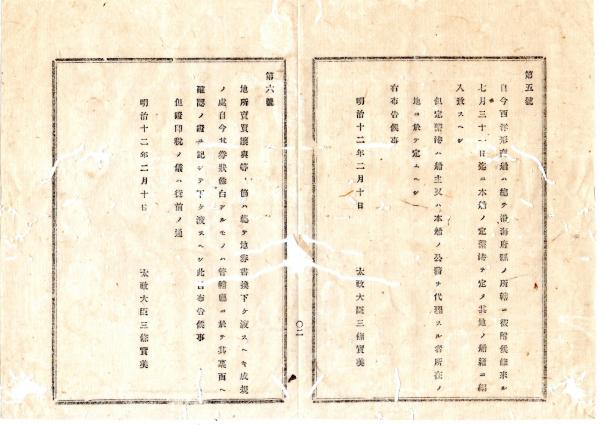 第五號
自今西洋形商船ハ總テ沿海府縣ノ所轄ニ被附候條來ル
七月三十一日迄ニ本船ノ定繋港ヲ定メ其地ノ船籍ニ編
入致スヘシ
但定繋港ハ船主又ハ本船ノ公務ヲ代理スル者所在ノ
地ニ於テ定ムヘシ
右布告候事
明治十二年二月十日
太政大臣三條實美
第六號
地所賣買讓與等ノ節ハ總テ地券書換下ケ渡スヘキ成規
ノ處自今其券狀餘白アルモノハ管轄廳ニ於テ其裏面ヘ
確認ノ證ヲ記シテ下ケ渡スヘシ此旨布告候事
但證印稅ノ儀ハ從前ノ通
明治十二年二月十日
太政大臣三條實美
〇二